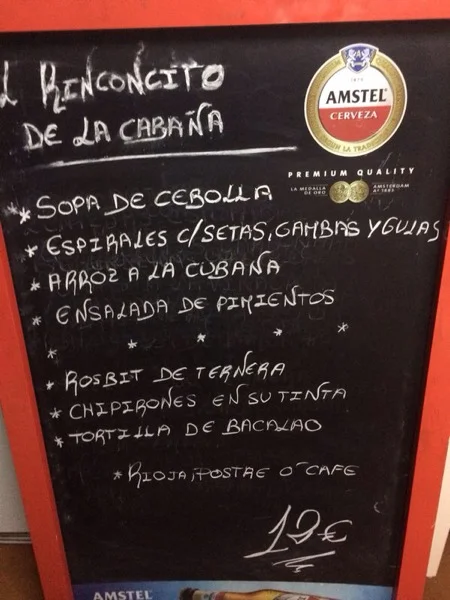 L RINCONCITO
DE LA CABAÑA
1870
AMSTEL
CERVEZA
PREMIUM QUALITY
LA MEDALLA DE ORO AMSTERDAM AT 1883
* SOPA DE CEBOLLA
* ESPIRALES C/SETAS, GAMBAS Y GULAS
* ARROZ A LA CUBANA
* ENSALADA DE PIMIENTOS
* * * * *
* ROSBIT DE TERNERA
* CHIPIRONES EN SU TINTA
* TORTILLA DE BACALAO
* RIOJA, POSTRE O CAFE
12€
AMSTEL